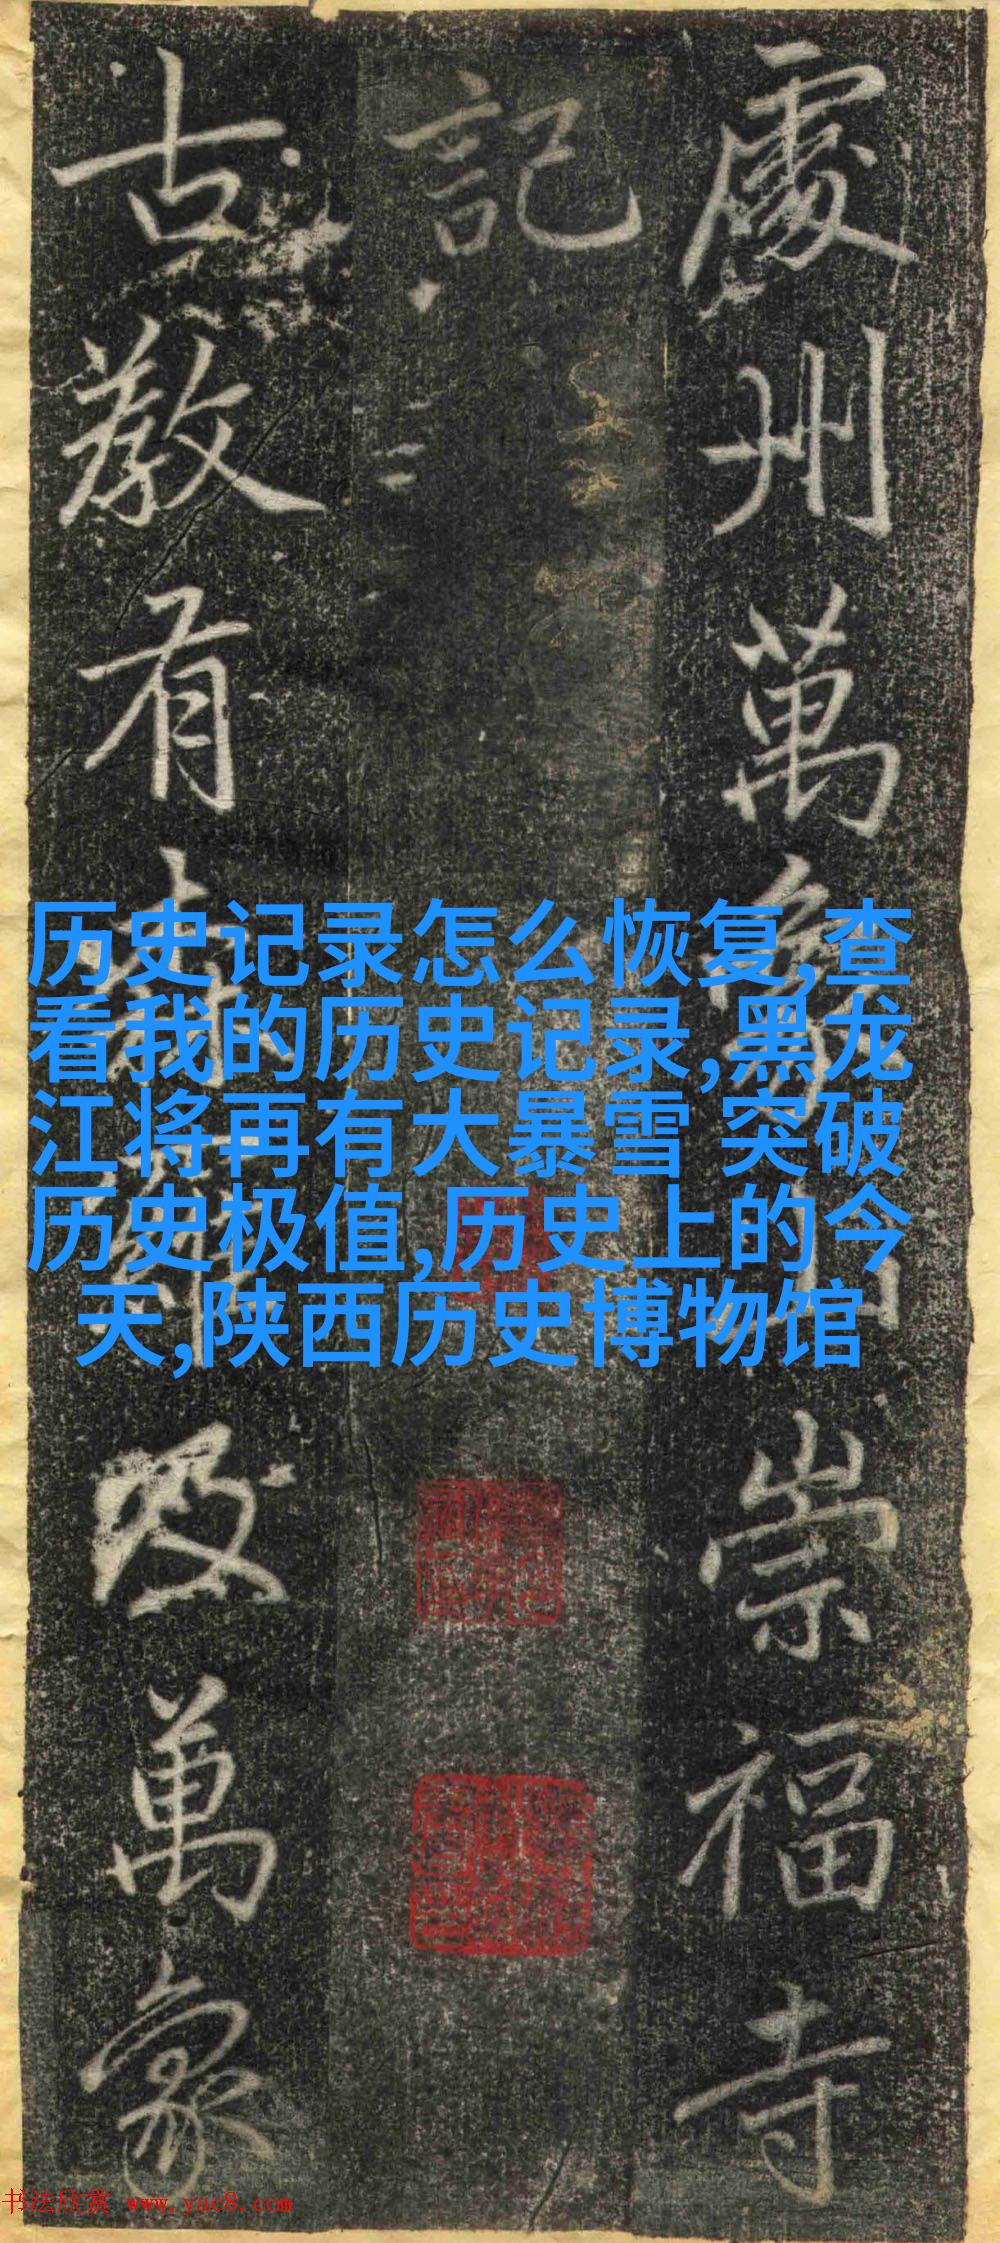 處州萬象山崇福寺
記
古教有萬象
历史记录怎么恢复,查
看我的历史记录,黑龙
江将再有大暴雪 突破
历史极值,历史上的今
天,陕西历史博物馆
书法欣赏 www.yac8.com